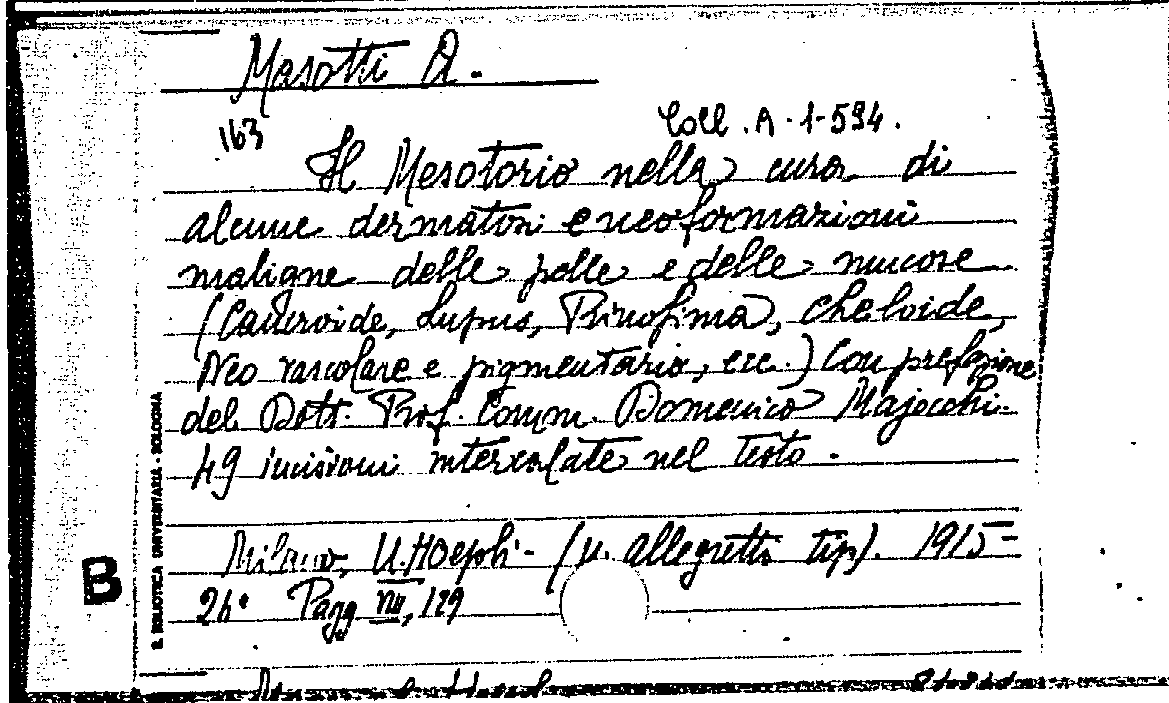 Masotti A.
163
Coll. A-1-594.
Il Mesotorio nella cura di
alcune dermatosi e neoformazioni
maligne delle pelle e delle mucose
(Cancroide, Lupus, Rinofima, cheloide,
Neo vascolare e pigmentario, ecc.) Con prefazione
del Dott. Prof. Comm. Domenico Majocchi.
49 incisioni intercalate nel testo.
Milano, U. Hoepli - (u. allegretti tip). 1915 -
26° Pagg VIII, 129
R. BIBLIOTECA UNIVERSITARIA - BOLOGNA
B